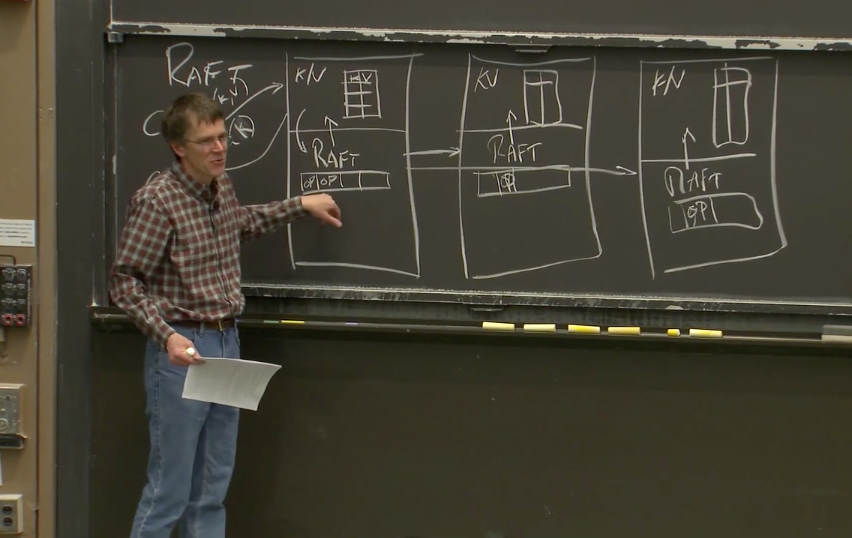 RAFT
K/V
KV
RAFT
OP OP
KV
RAFT
OP
K/V
RAFT
OP